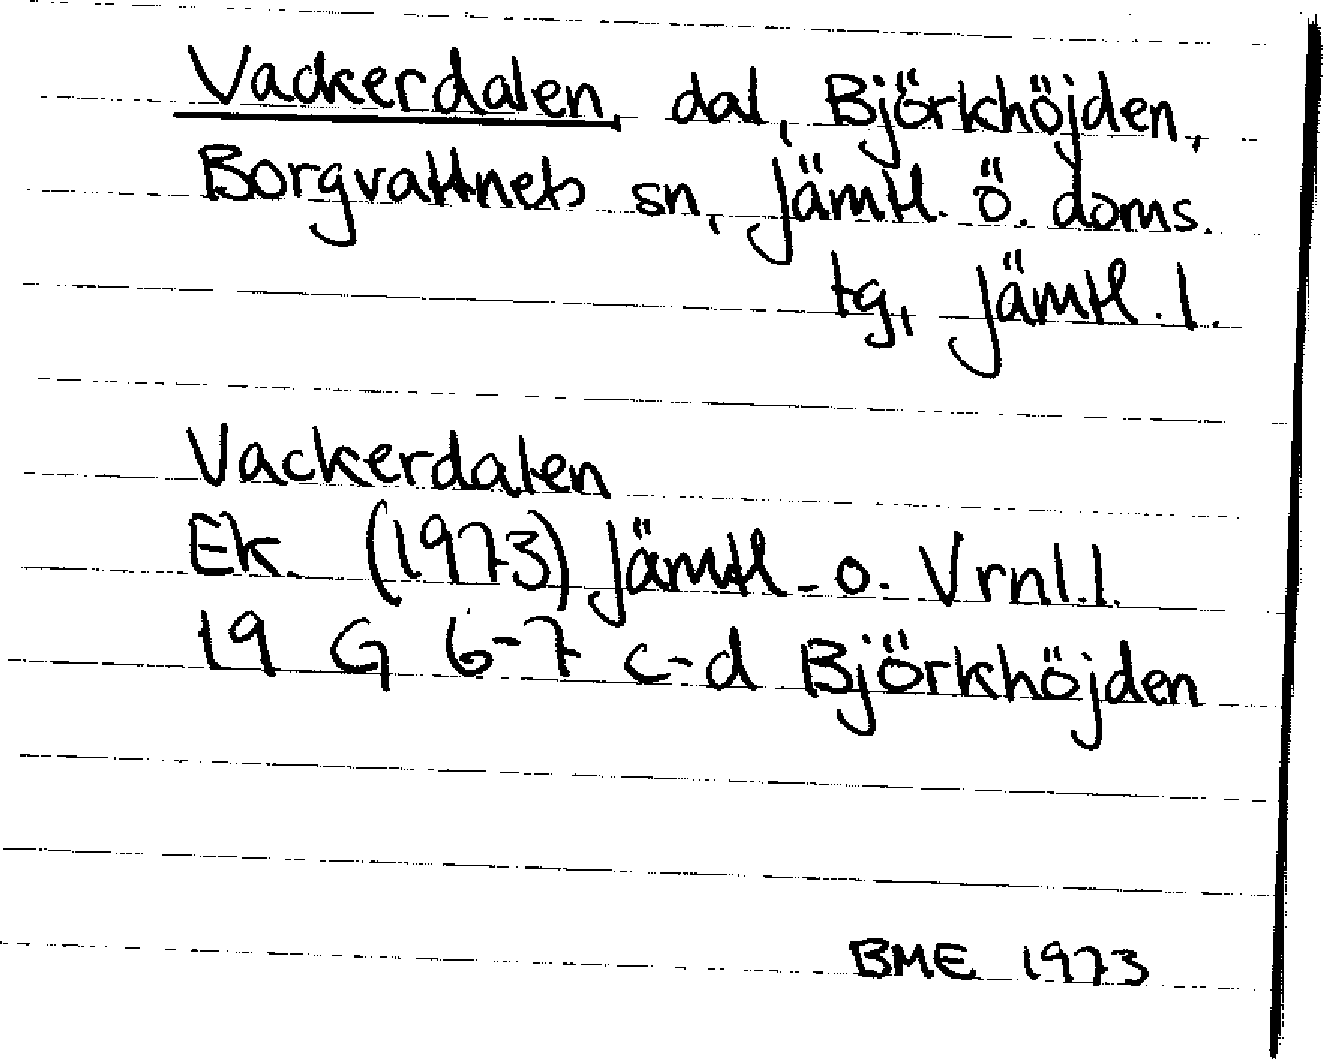 Vackerdalen, dal, Björkhöjden,
Borgvattnets sn, Jämtl. Ö. doms.
tg, Jämtl. l.
Vackerdalen
Ek. (1973) Jämtl. o. Vrnl.l.
19 G 6-7 c-d Björkhöjden
BME 1973